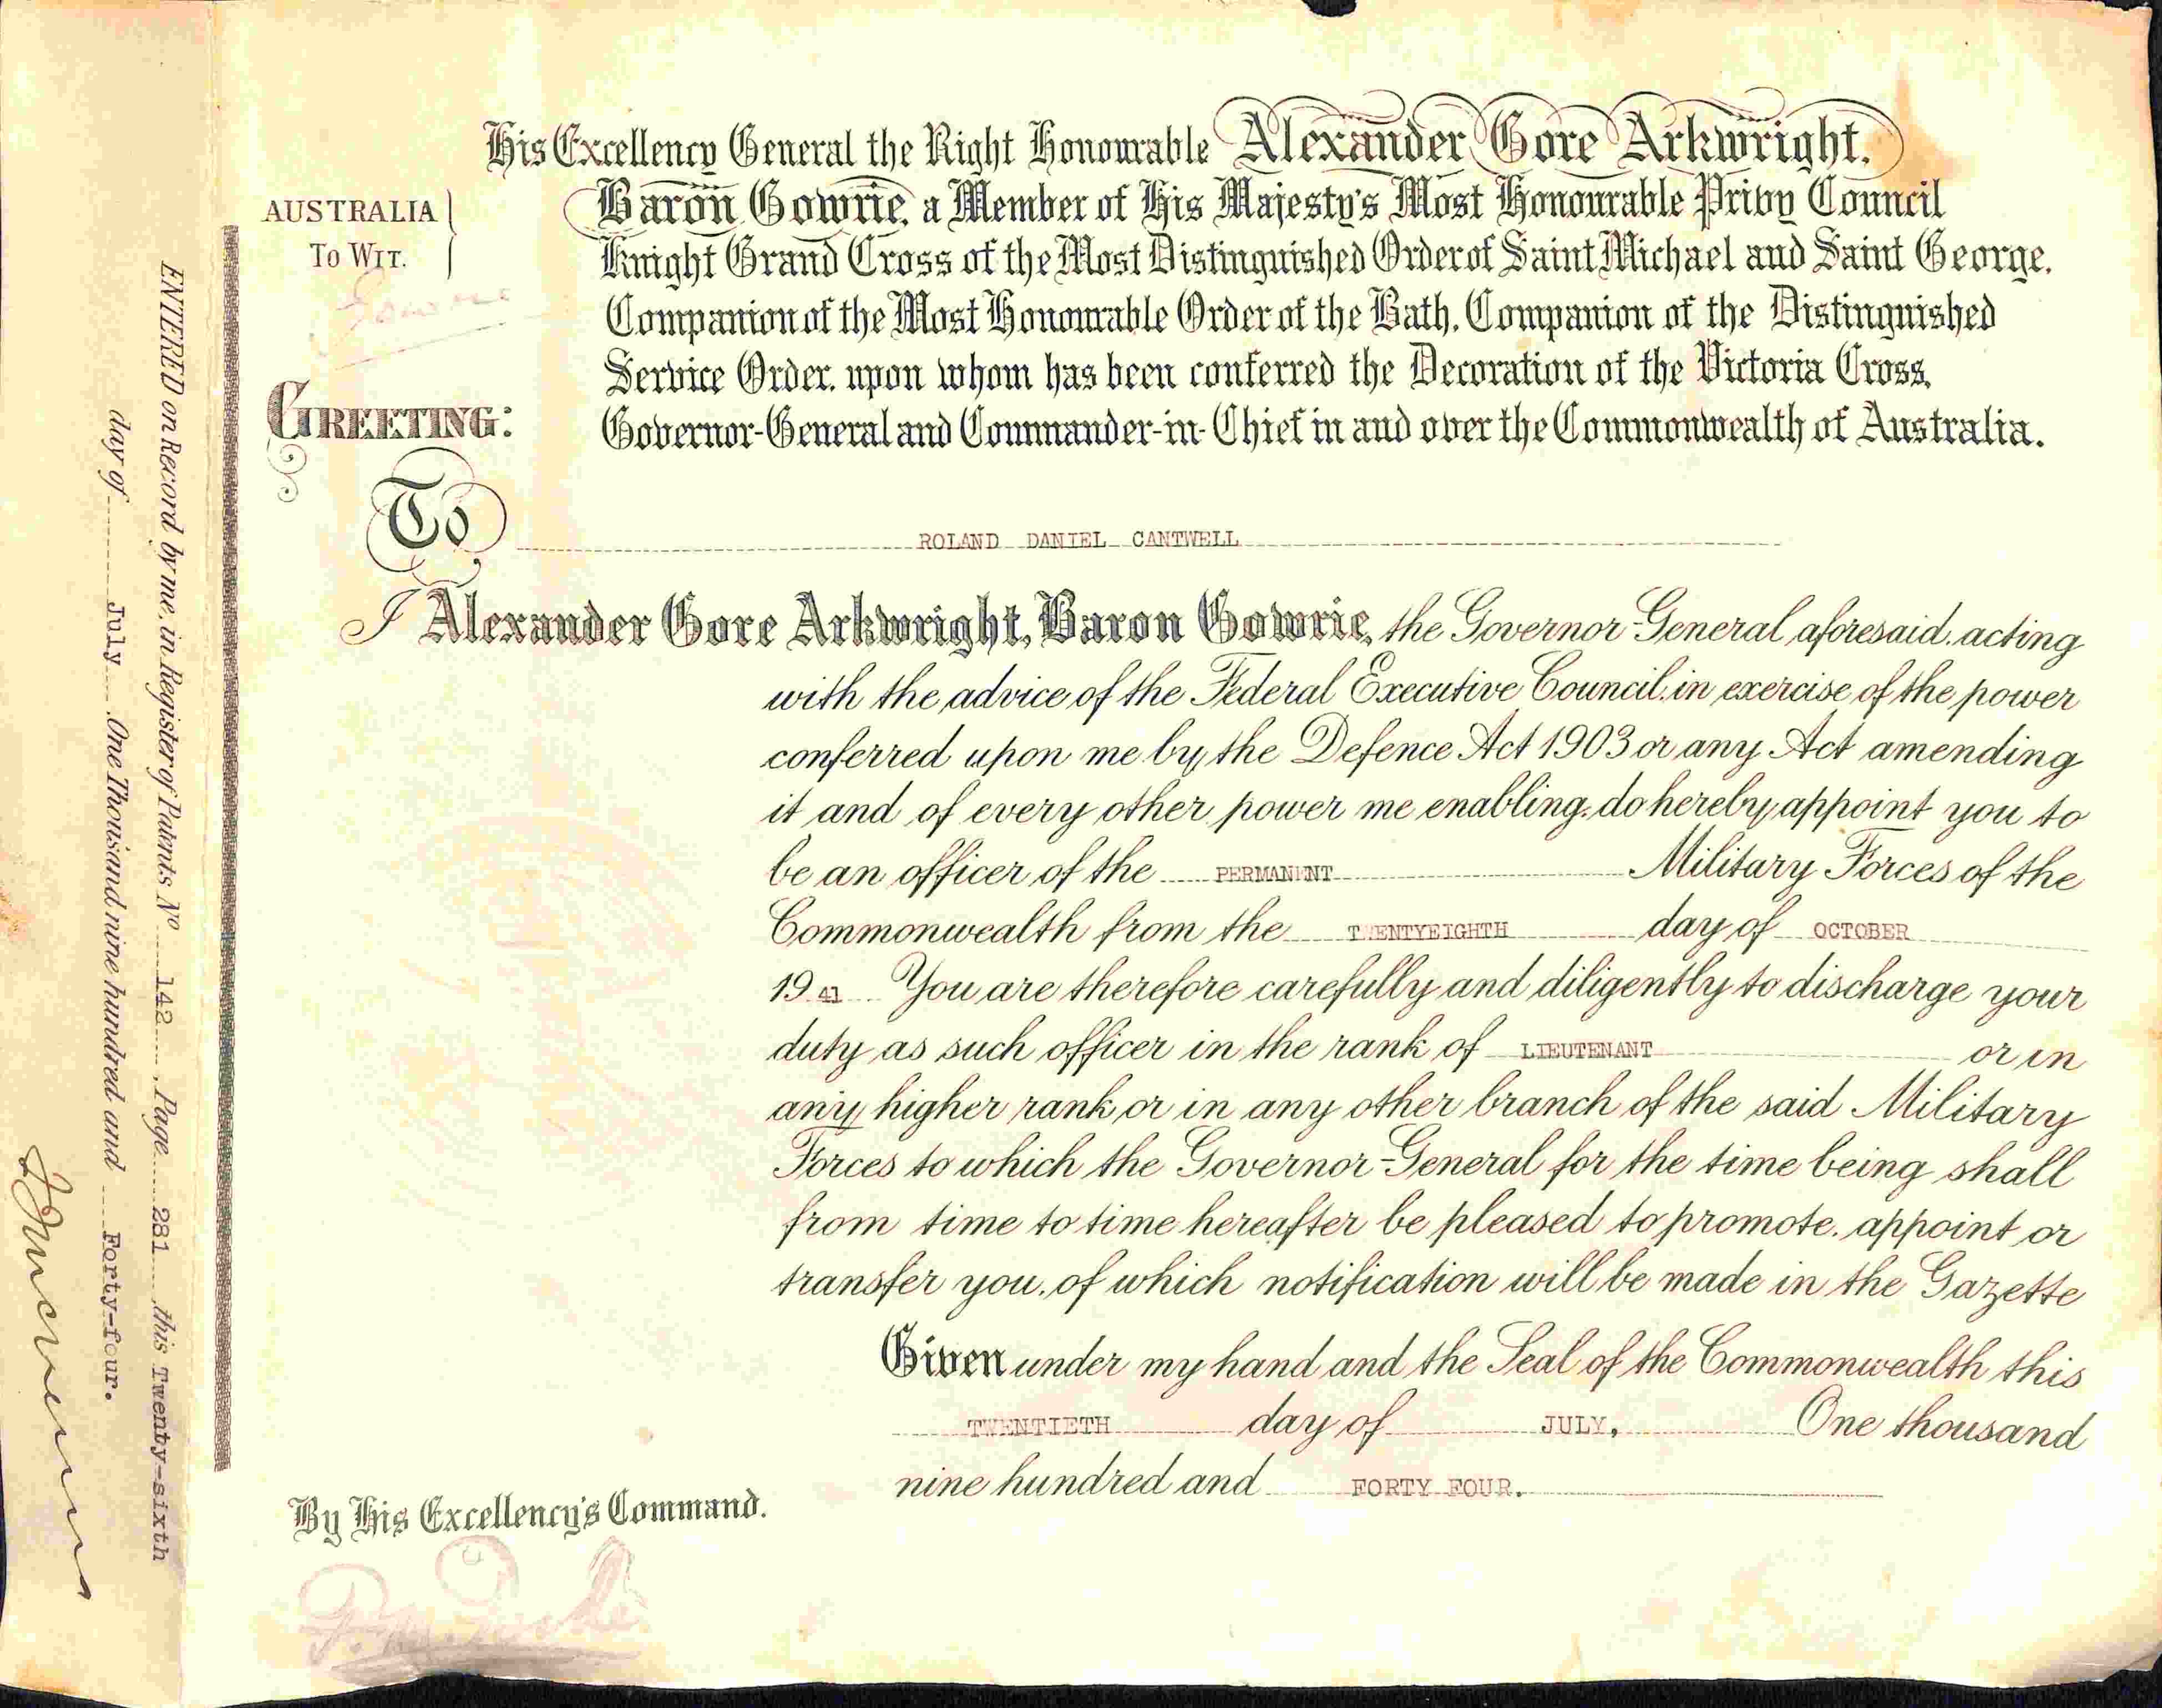 His Excellency General the Right Honourable Alexander Gore Arkwright,
Baron Gowrie, a Member of His Majesty's Most Honourable Privy Council
Knight Grand Cross of the Most Distinguished Order of Saint Michael and Saint George,
Companion of the Most Honourable Order of the Bath, Companion of the Distinguished
Service Order, upon whom has been conferred the Decoration of the Victoria Cross,
Governor-General and Commander-in-Chief in and over the Commonwealth of Australia.
AUSTRALIA
TO WIT.
Gowrie
GREETING:
To ROLAND DANIEL CANTWELL
I Alexander Gore Arkwright, Baron Gowrie, the Governor-General aforesaid, acting
with the advice of the Federal Executive Council, in exercise of the power
conferred upon me by the Defence Act 1903 or any Act amending
it and of every other power me enabling, do hereby appoint you to
be an officer of the PERMANENT Military Forces of the
Commonwealth from the TWENTYEIGHTH day of OCTOBER
1941 You are therefore carefully and diligently to discharge your
duty as such officer in the rank of LIEUTENANT or in
any higher rank or in any other branch of the said Military
Forces to which the Governor-General for the time being shall
from time to time hereafter be pleased to promote, appoint or
transfer you, of which notification will be made in the Gazette
Given under my hand and the Seal of the Commonwealth this
TWENTIETH day of JULY, One thousand
nine hundred and FORTY FOUR.
By His Excellency's Command.
ENTERED on Record by me, in Register of Patents No 142, Page 281 this Twenty-sixth
day of July One Thousand nine hundred and Forty-four.